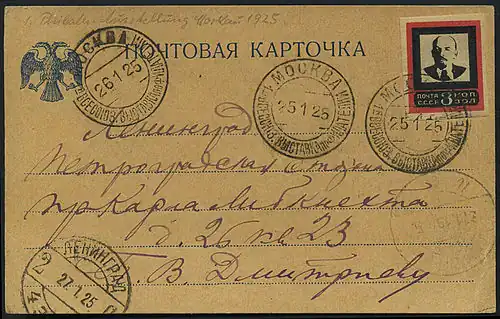 1. Philatel. Ausstellung Moskau 1925.
ПОЧТОВАЯ КАРТОЧКА
МОСКВА
26 1 25
МОСКВА
25 1 25
МОСКВА
25 1 25
ПОЧТА
СССР
3
КОП
ЗОЛ
Ленинград
Петроградская сторона
пр Карла Либкнехта
д. 26 кв 23
В. Дмитриеву
ЛЕНИНГРАД
27 1 25